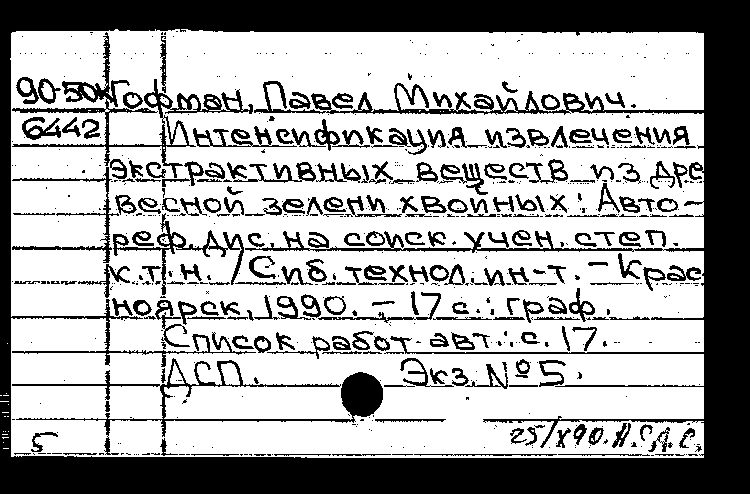 90-50к Гофман, Павел Михайлович.
6442 Интенсификация извлечения
экстрактивных веществ из дре
весной зелени хвойных: Авто-
реф. дис. на соиск. учен. степ.
к.т.н. / Сиб. технол. ин-т. - Крас
ноярск, 1990. - 17 с.: граф.
Список работ авт.: с. 17.
ДСП. Экз. № 5.
5 25/X90.